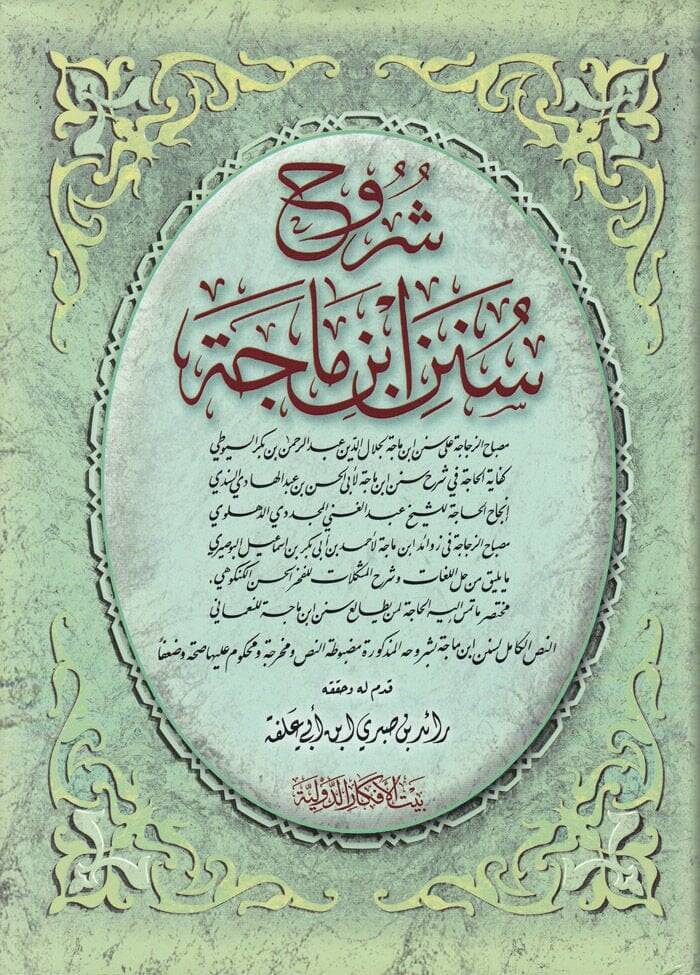 شُرُوح
سُنَنِ ابْنِ مَاجَة
مصباح الزجاجة على سنن ابن ماجة لجلال الدين عبد الرحمن بن بكر السيوطي
كفاية الحاجة في شرح سنن ابن ماجة لأبي الحسن بن عبد الهادي السندي
إنجاح الحاجة للشيخ عبد الغني المجددي الدهلوي
مصباح الزجاجة في زوائد ابن ماجة لأحمد بن أبي بكر بن إسماعيل البوصيري
ما يليق من حل اللغات وشرح المشكلات للفخر الحسن الكنكوهي،
مختصر ما تمس إليه الحاجة لمن يطالع سنن ابن ماجة للنعماني
النص الكامل لسنن ابن ماجة بشروحه المذكورة مضبوطة النص ومخرجة ومحكوم عليها صحة وضعفا
قدم له وحققه
رائد بن صبري ابن أبي علفة
بيت الأفكار الدولية